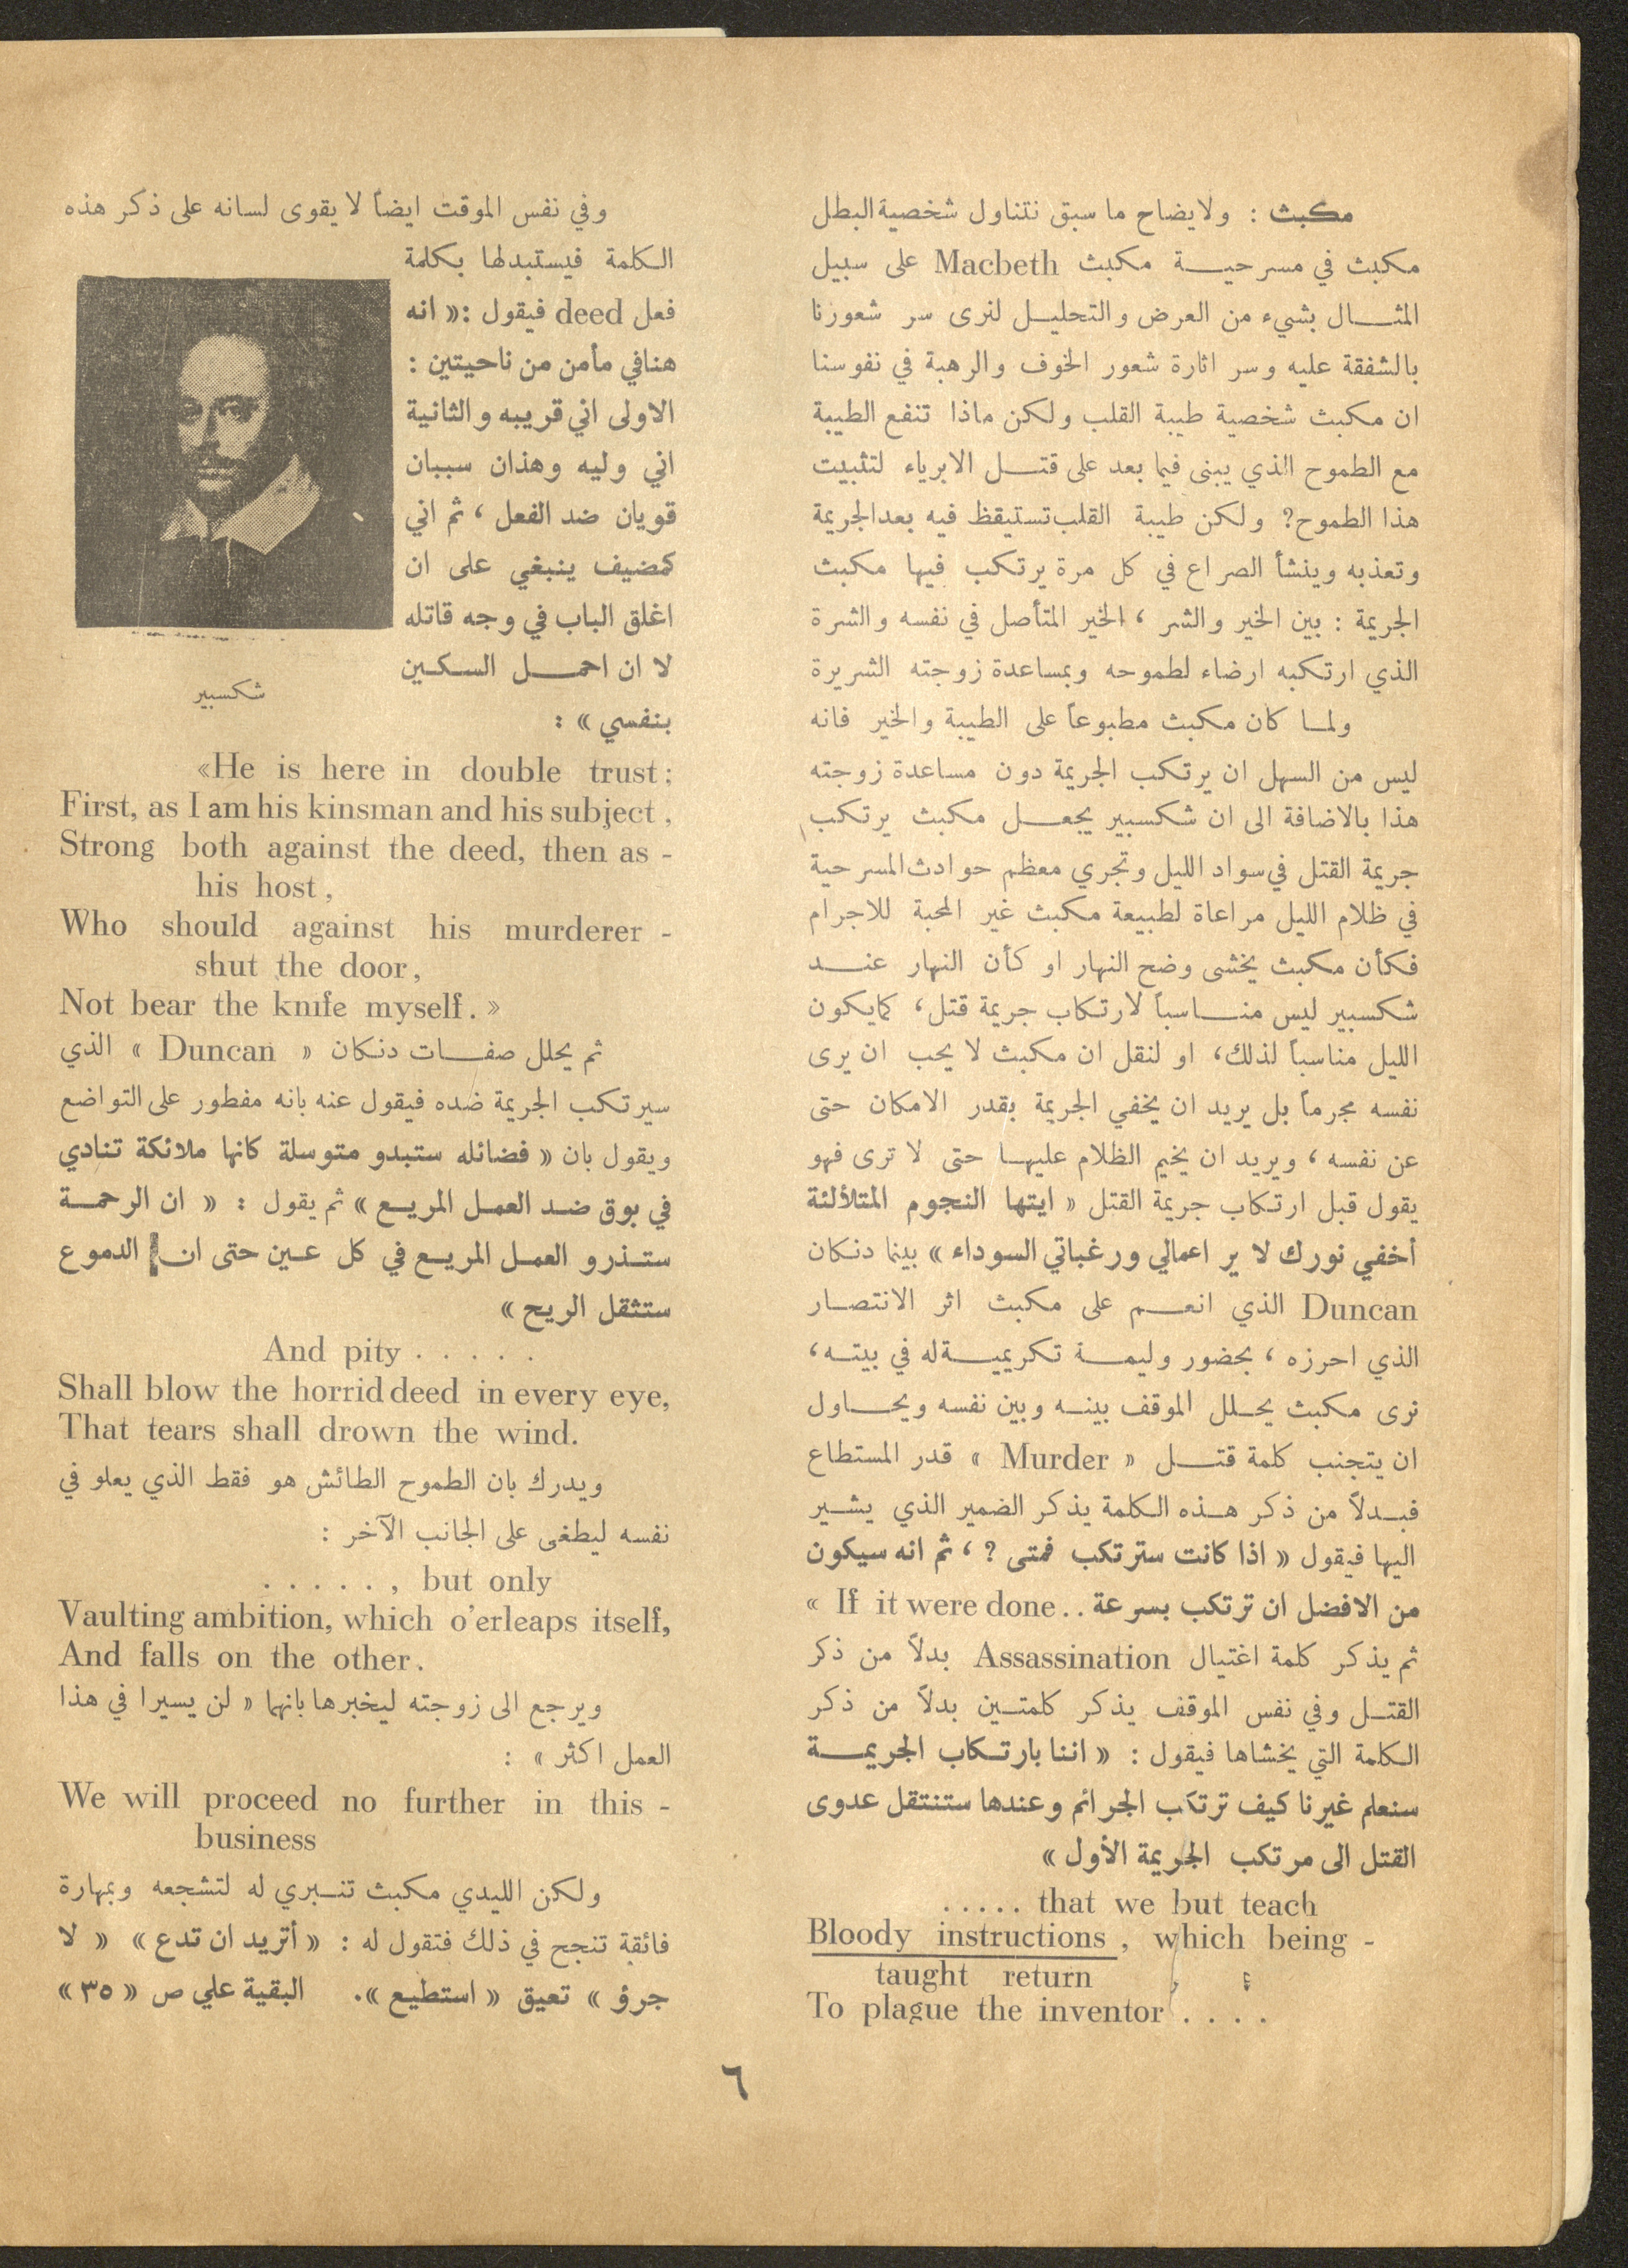 مكبث : ولايضاح ما سبق نتناول شخصية البطل
مكبث في مسرحيـة مكبث Macbeth على سبيل
المثـال بشيء من العرض والتحليـل لنرى سر شعورنا
بالشفقة عليه وسر اثارة شعور الخوف والرهبة في نفوسنا
ان مكبث شخصية طيبة القلب ولكن ماذا تنفع الطيبة
مع الطموح الذي يبنى فيما بعد على قتـل الابرياء لتثبيت
هذا الطموح؟ ولكن طيبة القلب تستيقظ فيه بعد الجريمة
وتعذبه وينشأ الصراع في كل مرة يرتكب فيها مكبث
الجريمة : بين الخير والشر ، الخير المتأصل في نفسه والشرة
الذي ارتكبه ارضاء لطموحه وبمساعدة زوجته الشريرة
ولمـا كان مكبث مطبوعاً على الطيبة والخير فانه
ليس من السهل ان يرتكب الجريمة دون مساعدة زوجته
هذا بالاضافة الى ان شكسبير يجعـل مكبث يرتكب
جريمة القتل في سواد الليل وتجري معظم حوادث المسرحية
في ظلام الليل مراعاة لطبيعة مكبث غير المحبة للاجرام
فكأن مكبث يخشى وضح النهار او كأن النهار عنـد
شكسبير ليس منـاسباً لارتكاب جريمة قتل ، كمايكون
الليل مناسباً لذلك ، او لنقل ان مكبث لا يحب ان يرى
نفسه مجرماً بل يريد ان يخفي الجريمة بقدر الامكان حتى
عن نفسه ، ويريد ان يخيم الظلام عليهـا حتى لا ترى فهو
يقول قبل ارتكاب جريمة القتل « ايتها النجوم المتلألئة
أخفي نورك لا ير اعمالي ورغباتي السوداء » بينما دنكان
Duncan الذي انعـم على مكبث اثر الانتصـار
الذي احرزه ، بحضور وليمـة تكريميـة له في بيتـه ،
نرى مكبث يحـلل الموقف بينـه وبين نفسه ويحـاول
ان يتجنب كلمة قتـل « Murder » قدر المستطاع
فبـدلاً من ذكر هـذه الكلمة يذكر الضمير الذي يشـير
اليها فيقول « اذا كانت سترتكب فمتى ? ، ثم انه سيكون
من الافضل ان ترتكب بسرعة .. If it were done »
ثم يذكر كلمة اغتيال Assassination بدلاً من ذكر
القتـل وفي نفس الموقف يذكر كلمتـين بدلاً من ذكر
الكلمة التي يخشاها فيقول : « اننا بارتـكاب الجريمـة
سنعلم غيرنا كيف ترتكب الجرائم وعندها ستنتقل عدوى
القتل الى مرتكب الجريمة الأول »
..... that we but teach
Bloody instructions , which being -
taught return
To plague the inventor ....
وفي نفس الموقت ايضاً لا يقوى لسانه على ذكر هذه
الكلمة فيستبدلها بكلمة
فعل deed فيقول : « انه
هنافي مأمن من ناحيتين :
الاولى اني قريبه والثانية
اني وليه وهذان سببان
قويان ضد الفعل ، ثم اني
كمضيف ينبغي على ان
اغلق الباب في وجه قاتله
لا ان احمـل السكـين
بنفسي » :
شكسبير
«He is here in double trust;
First, as I am his kinsman and his subject ,
Strong both against the deed, then as -
his host ,
Who should against his murderer -
shut the door ,
Not bear the knife myself . »
ثم يحلل صفـات دنكان « Duncan » الذي
سيرتكب الجريمة ضده فيقول عنه بانه مفطور على التواضع
ويقول بان « فضائله ستبدو متوسلة كانها ملائكة تنادي
في بوق ضـد العمـل المريـع » ثم يقول : « ان الرحمـة
ستـذرو العمـل المريـع في كل عـين حتى ان الدموع
ستثقل الريح »
And pity .....
Shall blow the horrid deed in every eye,
That tears shall drown the wind.
ويدرك بان الطموح الطائش هو فقط الذي يعلو في
نفسه ليطغى على الجانب الآخر :
...... , but only
Vaulting ambition, which o'erleaps itself,
And falls on the other .
ويرجع الى زوجته ليخبرها بانهما « لن يسيرا في هذا
العمل اكثر » :
We will proceed no further in this -
business
ولكن الليدي مكبث تنـبري له لتشجعه وبمهارة
فائقة تنجح في ذلك فتقول له : « أتريد ان تدع » « لا
جرؤ » تعيق « استطيع ». البقية علي ص « ٣٥ »
٦